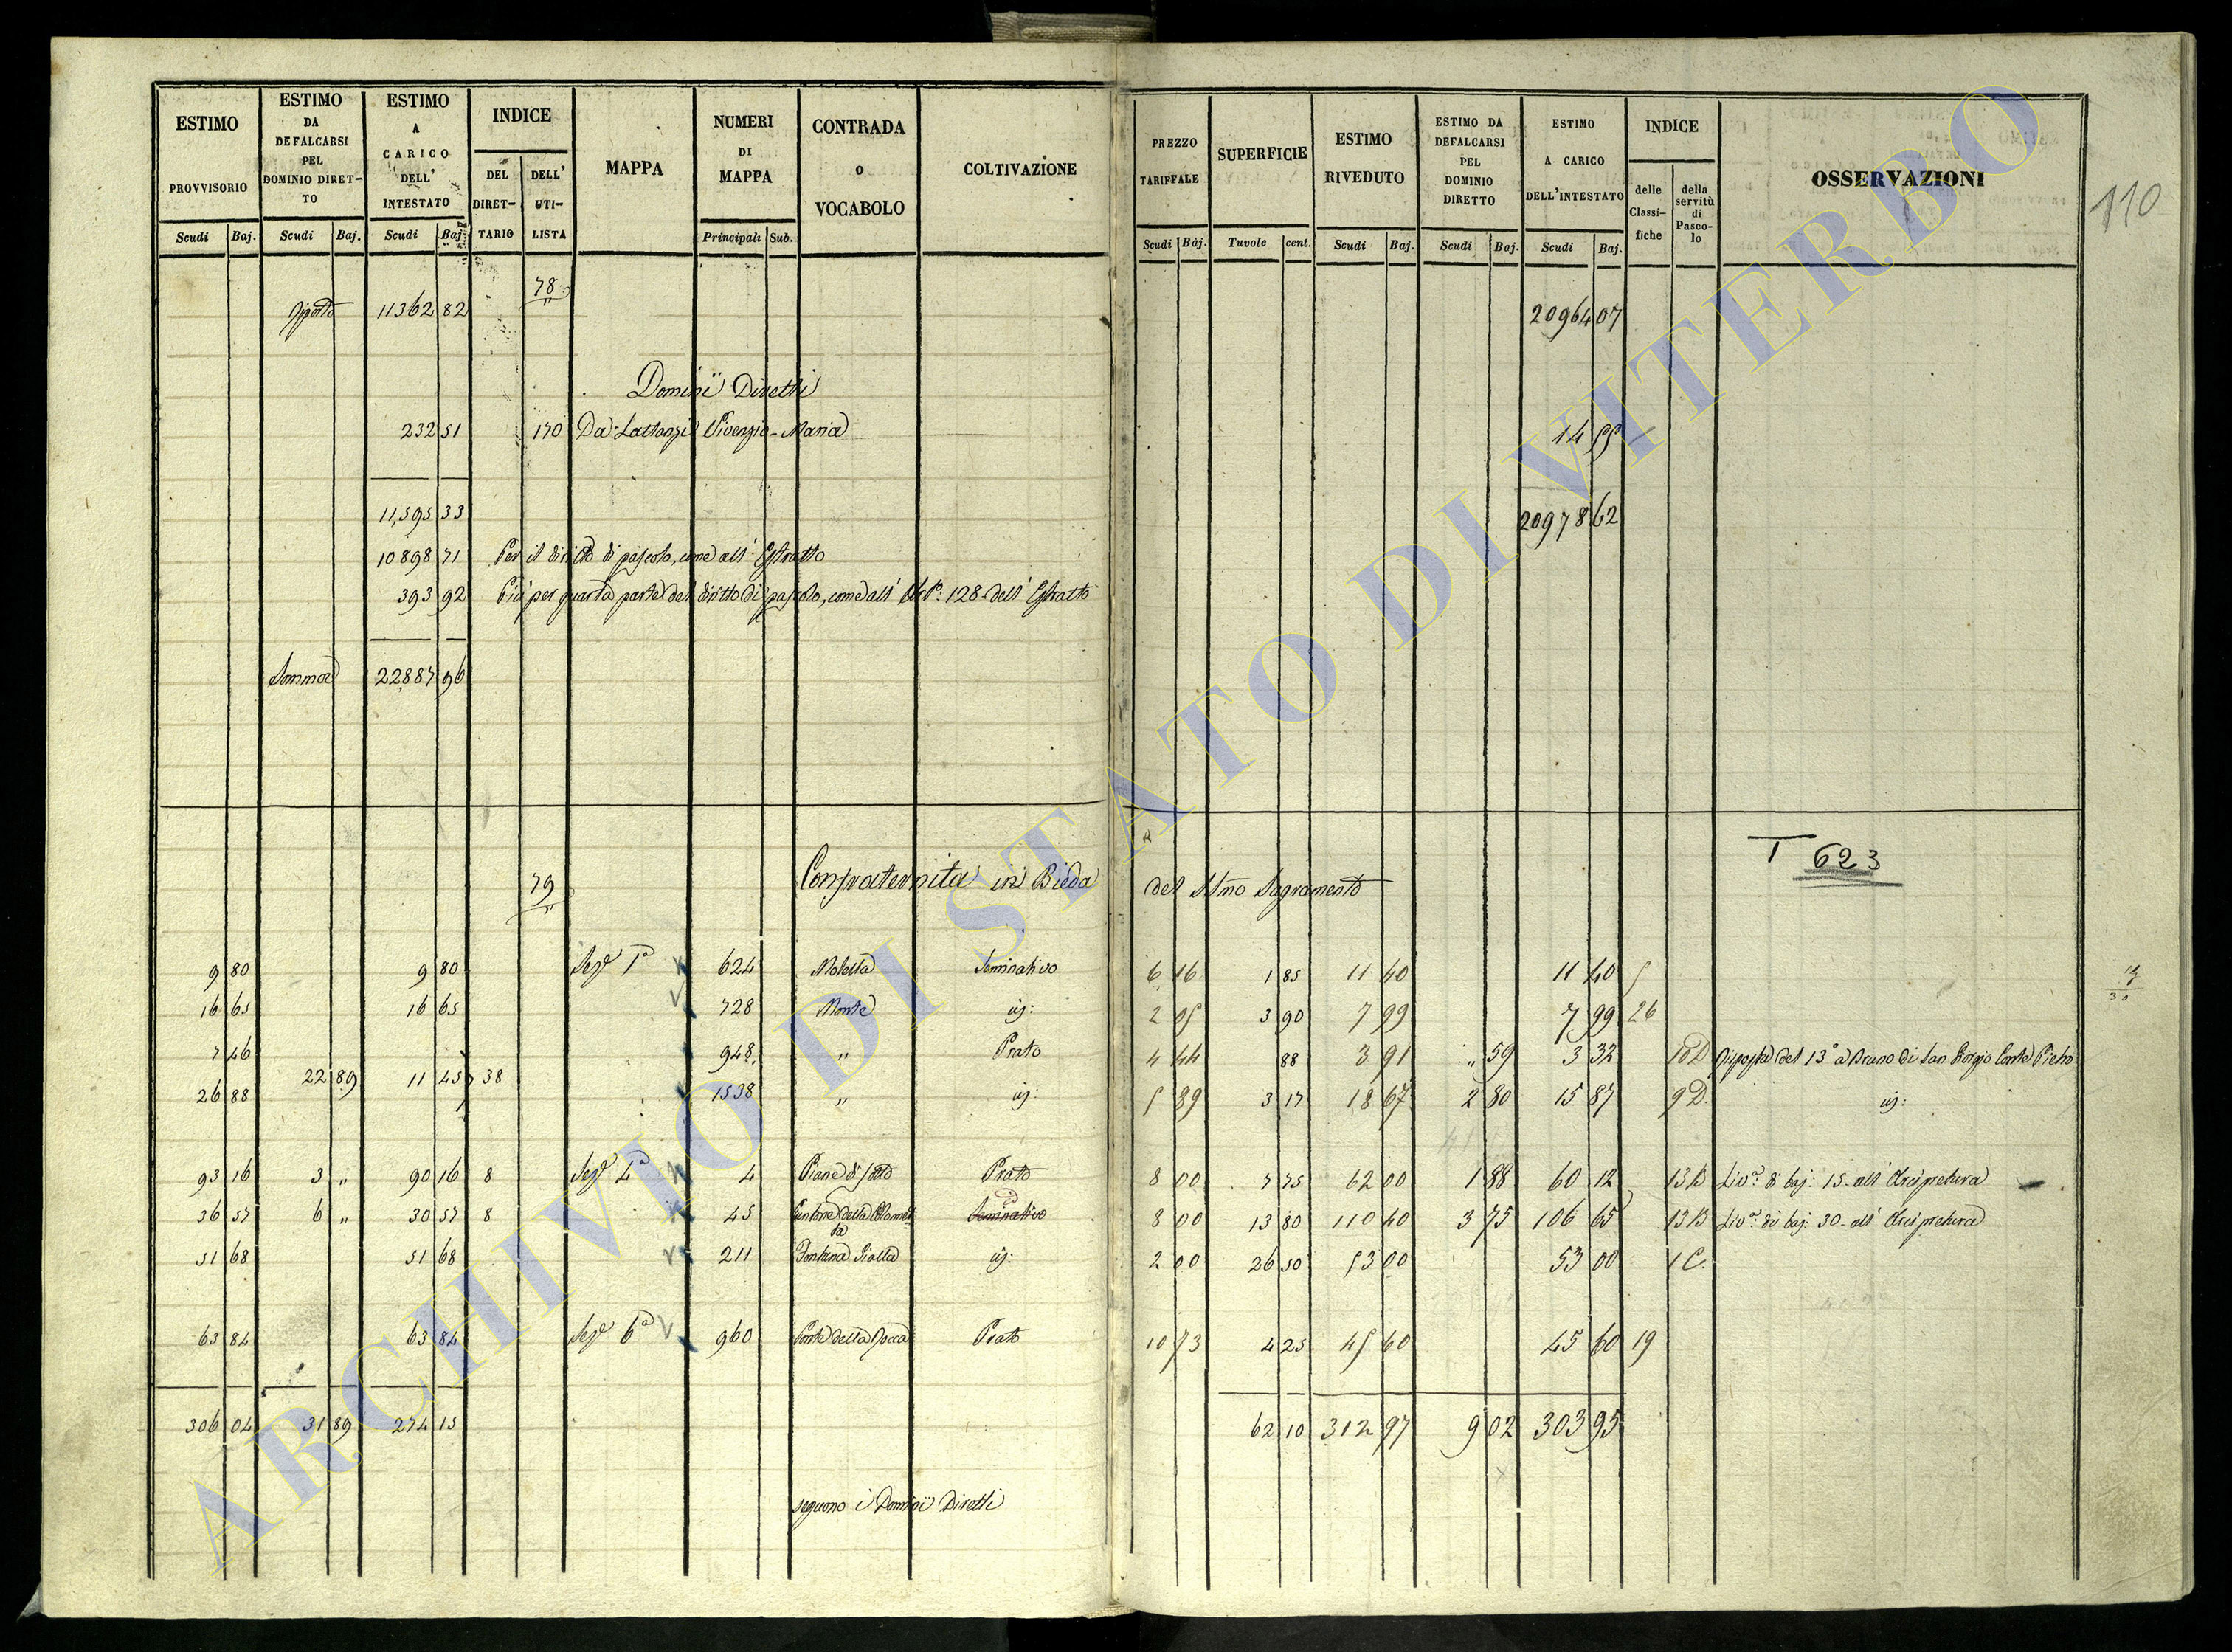 ESTIMO PROVVISORIO
ESTIMO DA DEFALCARSI PEL DOMINIO DIRET-TO
ESTIMO A CARICO DELL' INTESTATO
INDICE
DEL DIRET-TARIO
DELL' UTI-LISTA
MAPPA
NUMERI DI MAPPA
CONTRADA o VOCABOLO
COLTIVAZIONE
PREZZO TARIFFALE
SUPERFICIE
ESTIMO RIVEDUTO
ESTIMO DA DEFALCARSI PEL DOMINIO DIRETTO
ESTIMO A CARICO DELL'INTESTATO
INDICE
delle Classi-fiche
della servitù di Pasco-lo
OSSERVAZIONI
110
Scudi Baj. Scudi Baj. Scudi Baj. Principali Sub. Scudi Baj. Tuvole cent. Scudi Baj. Scudi Baj. Scudi Baj.
78
Riporto 11362 82 20964 07
Dominii Diretti
232 51 170 Da Lattanzi Vivenzio Maria 14 55
11,595 33 20978 62
10898 71 Per il diritto di pascolo, come all' Estratto
393 92 Più per quarta parte del diritto di pascolo, come all' Art. 128 dell' Estratto
Somma 22887 96
T 623
79 Confraternita in Bieda del SSmo Sagramento
9 80 9 80 Sez.e 1a 624 Seminativo 6 16 1 85 11 40 11 40 5
16 65 16 65 728 Monte id: 2 05 3 90 7 99 7 99 26
7 46 948 " Prato 4 44 88 3 91 " 59 3 32 10 D Risposta del 13° a Bruno di San Giorgio Conte Pietro
22 89 11 45 38
26 88 1538 " id: 5 89 3 17 18 67 2 80 15 87 9 D. id:
93 16 3 " 90 16 8 Sez.e 4a 4 Prato 8 00 7 75 62 00 1 88 60 12 13 B Liv.o di baj: 15 all' Arcipretura
36 57 6 " 30 57 8 45 Seminativo 8 00 13 80 110 40 3 75 106 65 13 B Liv.o di baj: 30 all' Arcipretura
51 68 51 68 211 Fontana id: 2 00 26 50 53 00 53 00 1 C.
63 84 63 84 Sez.e 6a 960 Ponte della Rocca Prato 10 73 4 25 45 60 45 60 19
306 04 31 89 274 15 62 10 312 97 9 02 303 95
seguono i Dominii Diretti
ARCHIVIO DI STATO DI VITERBO